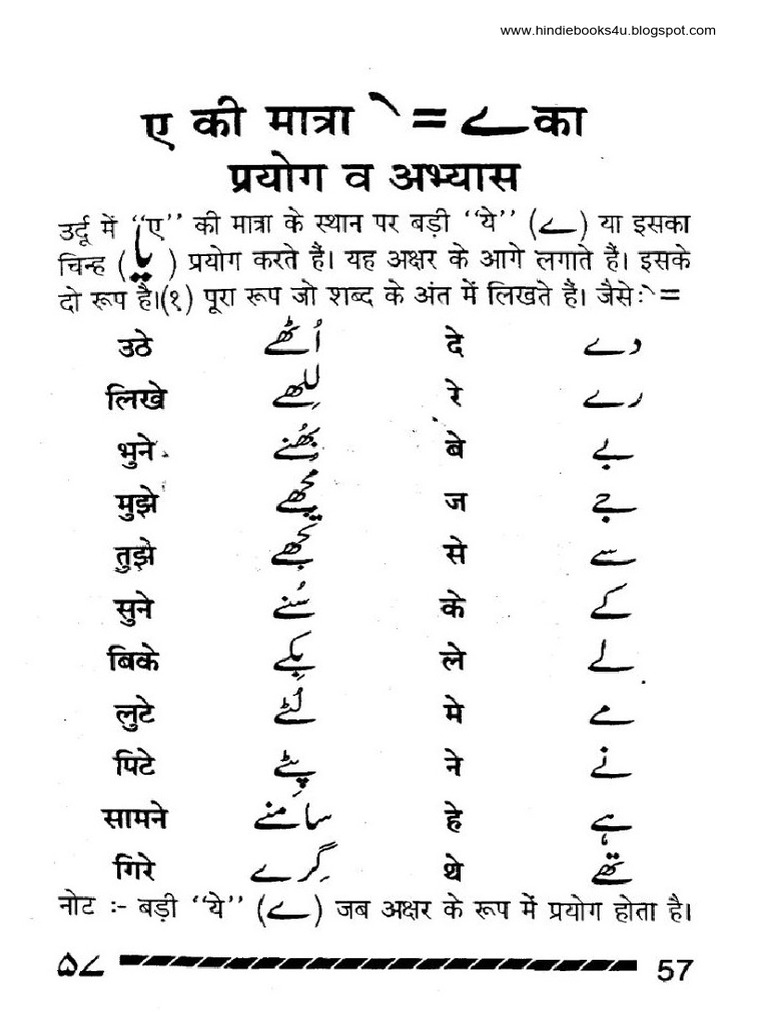 www.hindiebooks4u.blogspot.com
ए की मात्रा े = ے का
प्रयोग व अभ्यास
उर्दू में "ए" की मात्रा के स्थान पर बड़ी "ये" (ے) या इसका
चिन्ह ( ) प्रयोग करते हैं। यह अक्षर के आगे लगाते हैं। इसके
दो रूप है।(१) पूरा रूप जो शब्द के अंत में लिखते हैं। जैसेः े =
उठे اُٹھے दे دے
लिखे لِکھے रे رے
भुने بھُنے बे بے
मुझे مجھے ज جے
तुझे تجھے से سے
सुने سُنے के کے
बिके بِکے ले لے
लुटे لُٹے मे مے
पिटे پِٹے ने نے
सामने سامنے हे ہے
गिरे گِرے थे تھے
नोट :- बड़ी "ये" (ے) जब अक्षर के रूप में प्रयोग होता है।
۵۷ 57